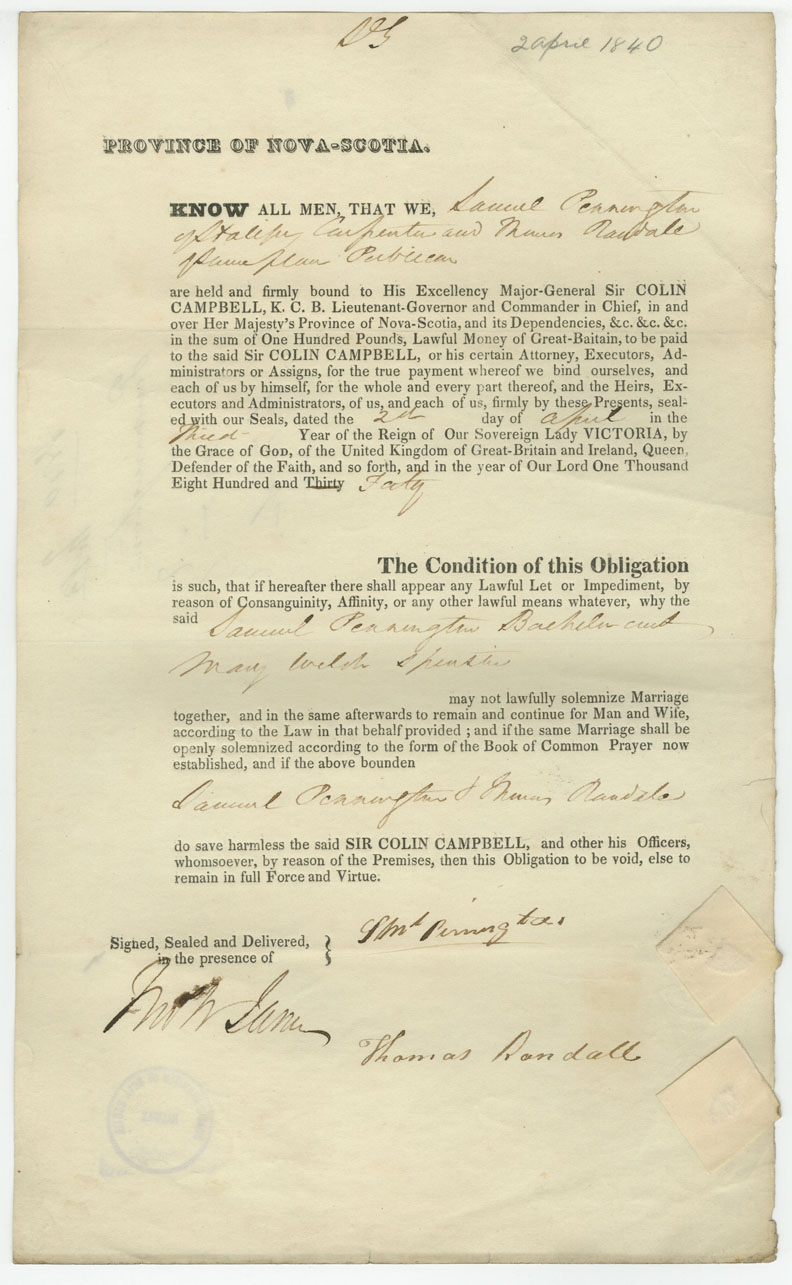 2 april 1840
PROVINCE OF NOVA-SCOTIA.
KNOW ALL MEN, THAT WE, Samuel Pennington
of Halifax Carpenter and Thomas Randale
of same place Publican
are held and firmly bound to His Excellency Major-General Sir COLIN
CAMPBELL, K. C. B. Lieutenant-Governor and Commander in Chief, in and
over Her Majesty's Province of Nova-Scotia, and its Dependencies, &c. &c. &c.
in the sum of One Hundred Pounds, Lawful Money of Great-Baitain, to be paid
to the said Sir COLIN CAMPBELL, or his certain Attorney, Executors, Ad-
ministrators or Assigns, for the true payment whereof we bind ourselves, and
each of us by himself, for the whole and every part thereof, and the Heirs, Ex-
ecutors and Administrators, of us, and each of us, firmly by these Presents, seal-
ed with our Seals, dated the 2nd day of April in the
Third Year of the Reign of Our Sovereign Lady VICTORIA, by
the Grace of GOD, of the United Kingdom of Great-Britain and Ireland, Queen,
Defender of the Faith, and so forth, and in the year of Our Lord One Thousand
Eight Hundred and Thirty Forty
The Condition of this Obligation
is such, that if hereafter there shall appear any Lawful Let or Impediment, by
reason of Consanguinity, Affinity, or any other lawful means whatever, why the
said Samuel Pennington Bachelor and
Mary Welsh Spinster
may not lawfully solemnize Marriage
together, and in the same afterwards to remain and continue for Man and Wife,
according to the Law in that behalf provided ; and if the same Marriage shall be
openly solemnized according to the form of the Book of Common Prayer now
established, and if the above bounden
Samuel Pennington & Thomas Randale
do save harmless the said SIR COLIN CAMPBELL, and other his Officers,
whomsoever, by reason of the Premises, then this Obligation to be void, else to
remain in full Force and Virtue.
Signed, Sealed and Delivered,
in the presence of
Saml Pennington
Thomas Randall